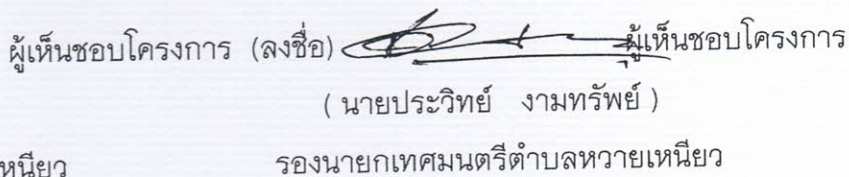 ผู้เห็นชอบโครงการ (ลงชื่อ) ผู้เห็นชอบโครงการ
( นายประวิทย์ งามทรัพย์ )
หนียว รองนายกเทศมนตรีตำบลหวายเหนียว